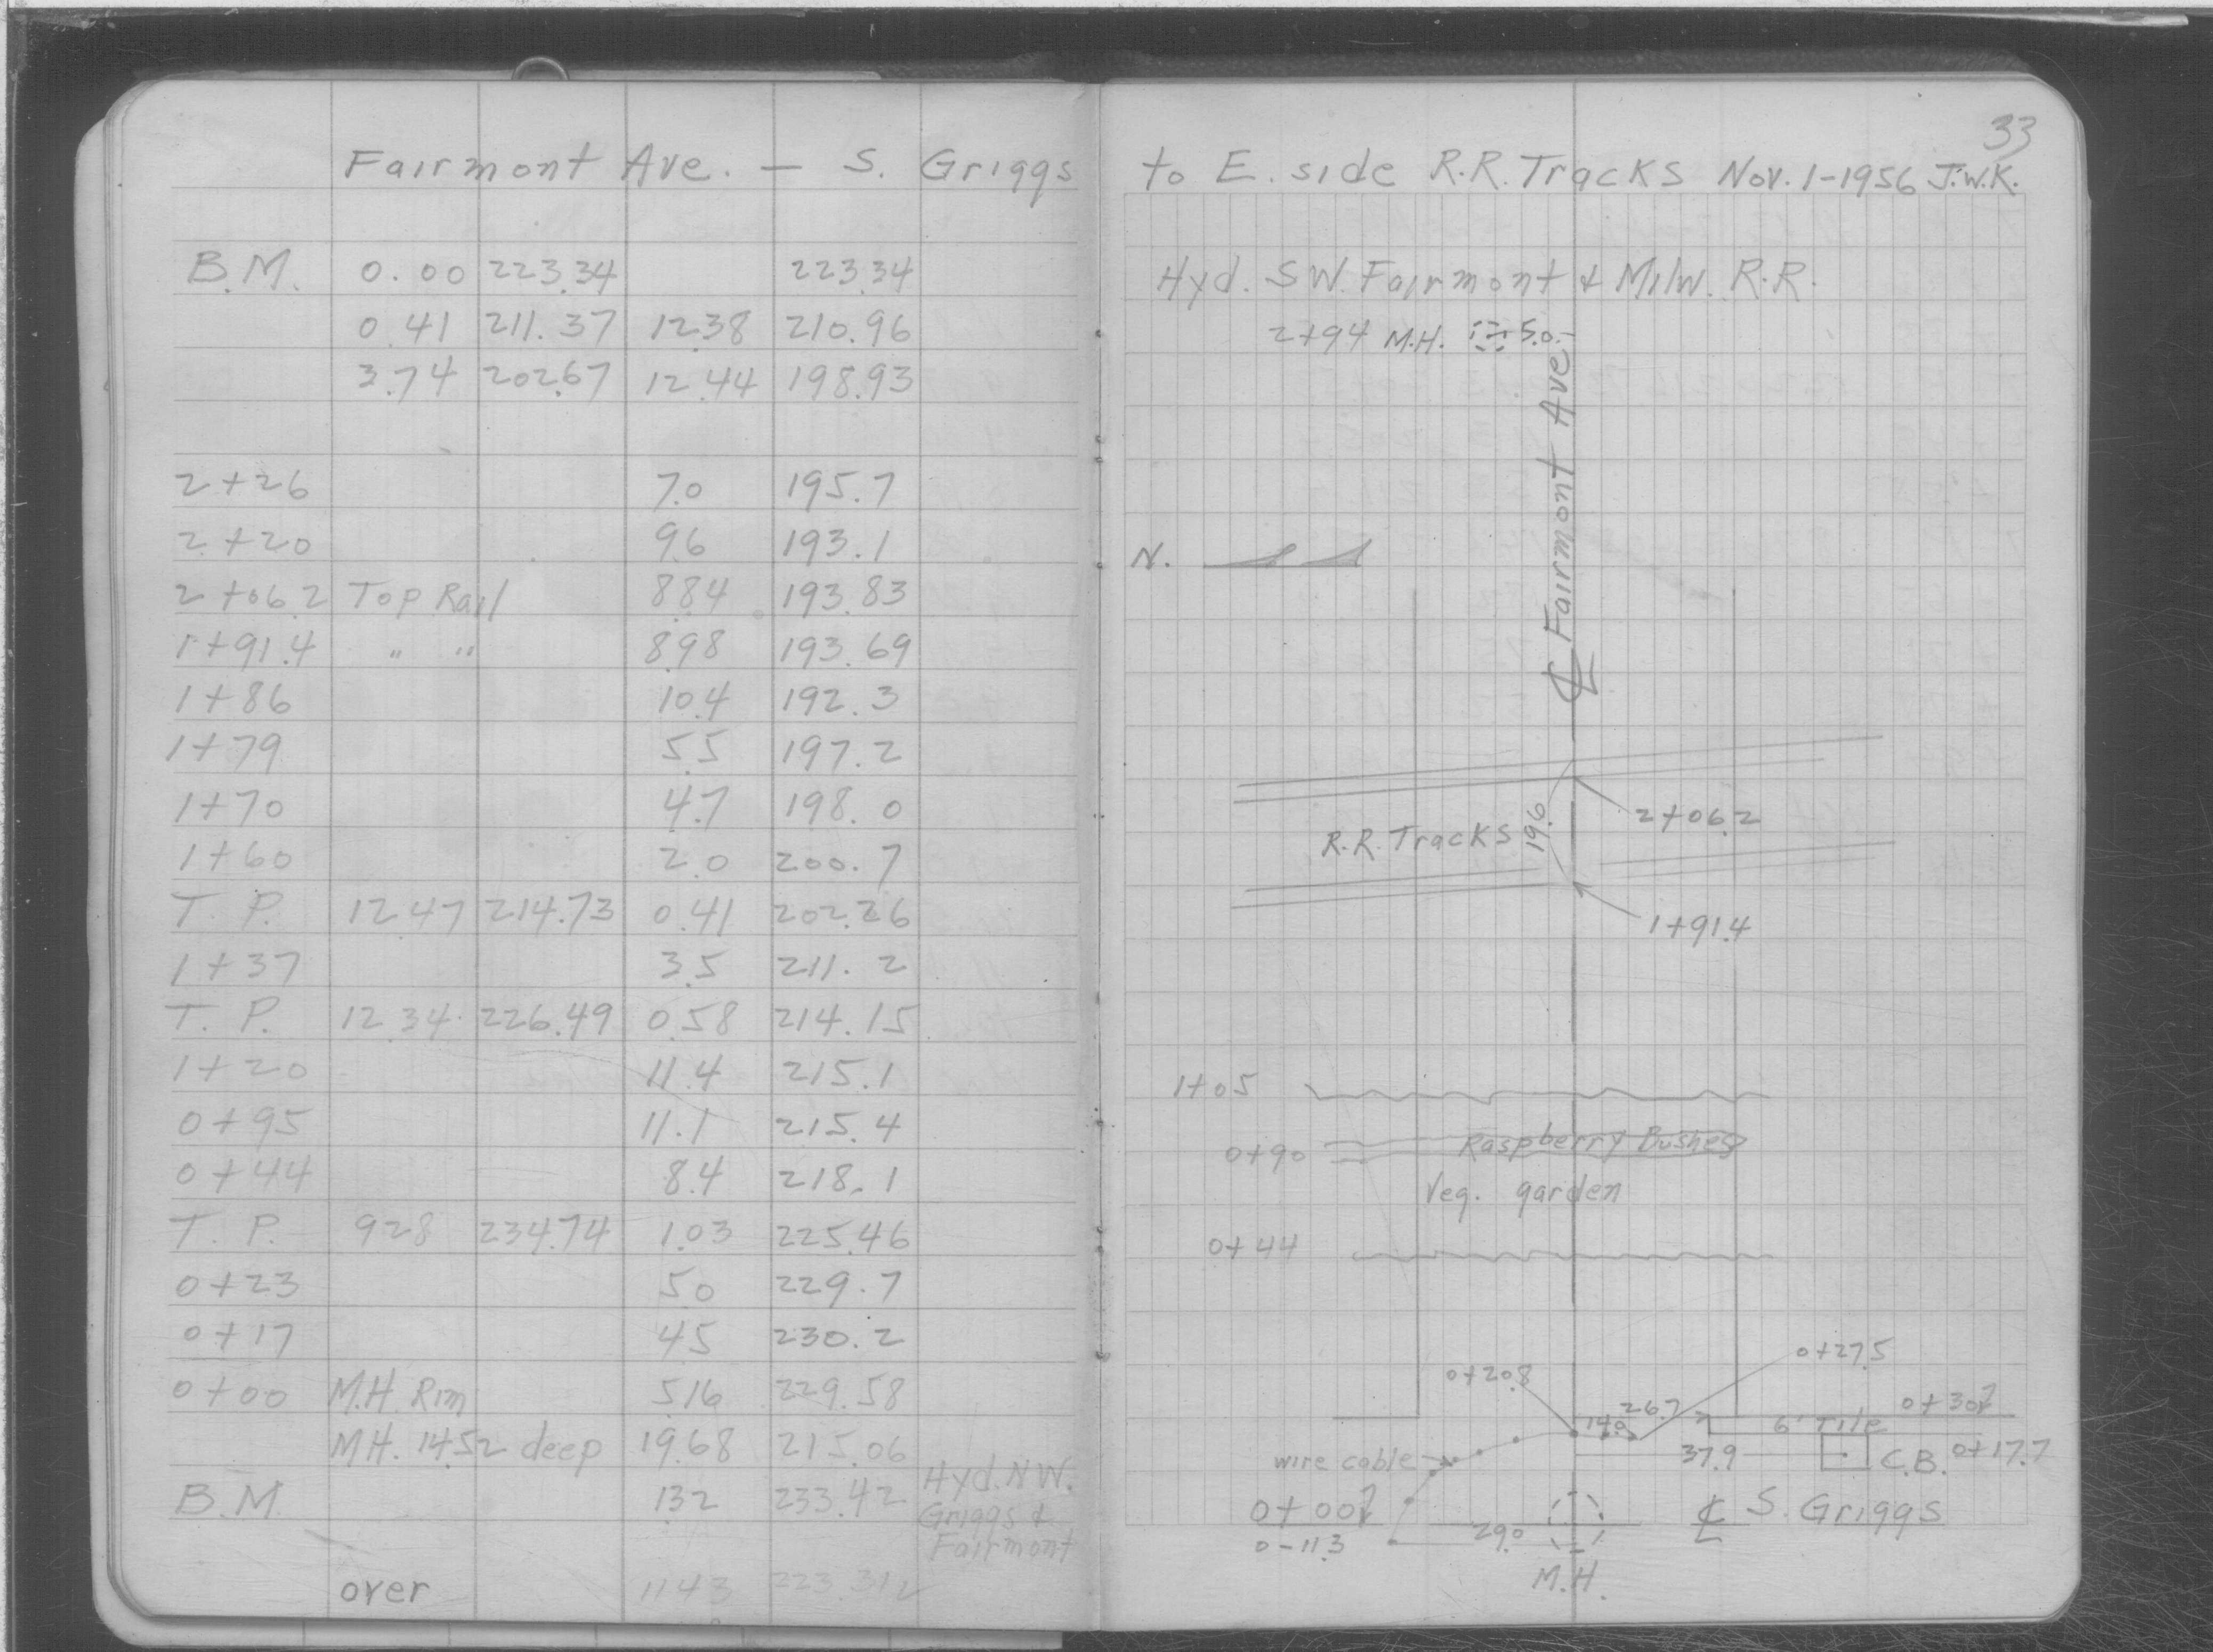 33
Fairmont Ave. — S. Griggs to E. side R.R. Tracks Nov. 1-1956 J.W.K.
B.M. 0.00 223.34 223.34
0.41 211.37 12.38 210.96
3.74 202.67 12.44 198.93
2+26 7.0 195.7
2+20 9.6 193.1
2+06.2 Top Rail 8.84 193.83
1+91.4 " " 8.98 193.69
1+86 10.4 192.3
1+79 5.5 197.2
1+70 4.7 198.0
1+60 2.0 200.7
T.P. 12.47 214.73 0.41 202.26
1+37 3.5 211.2
T.P. 12.34 226.49 0.58 214.15
1+20 11.4 215.1
0+95 11.1 215.4
0+44 8.4 218.1
T.P. 9.28 234.74 1.03 225.46
0+23 5.0 229.7
0+17 4.5 230.2
0+00 M.H. Rim 5.16 229.58
M.H. 14.52 deep 19.68 215.06
B.M. 1.32 233.42 Hyd. NW.
Griggs &
Fairmont
over 11.43
Hyd. SW. Fairmont & Milw. R.R.
2+94 M.H. 5.0
℄ Fairmont Ave
N.
2+06.2
R.R. Tracks 19.6
1+91.4
1+05
0+90 Raspberry Bushes
Veg. garden
0+44
0+27.5
0+20.8
26.7 0+30
14.0 6' Tile
wire cable 37.9 C.B. 0+17.7
0+00 ℄ S. Griggs
0-11.3 29.0
M.H.